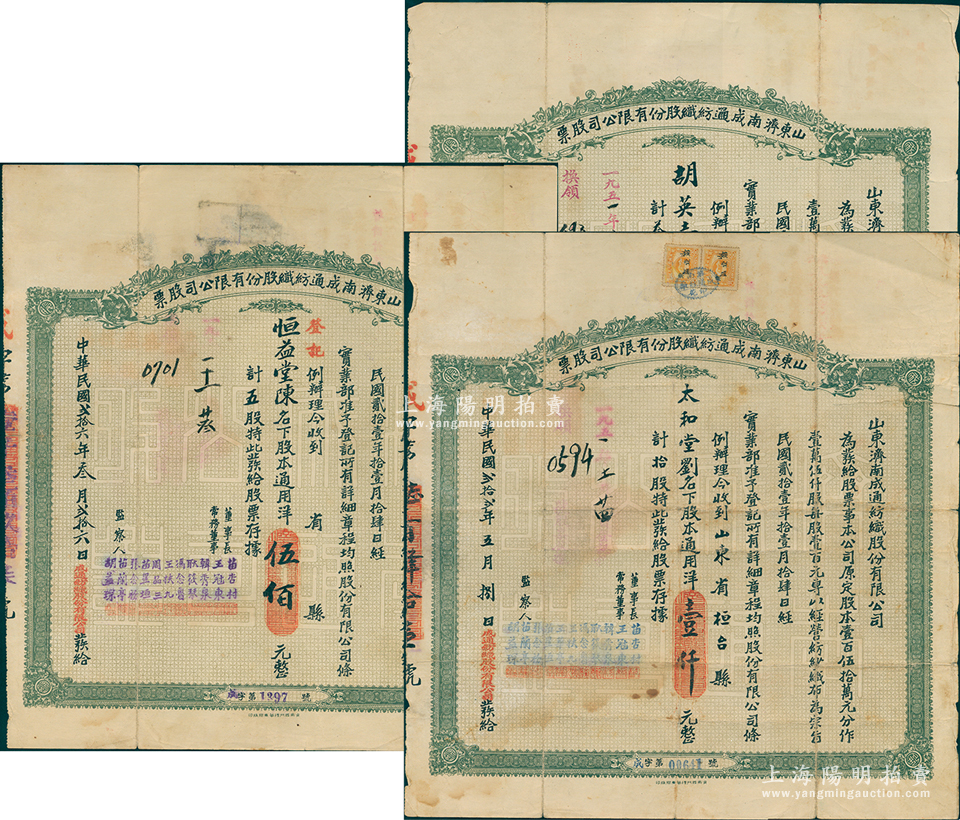 山東濟南成通紡織股份有限公司股票
山東濟
為發給
壹萬
民國
實業部
例辦
計
胡英
一九五一年
換領
山東濟南成通紡織股份有限公司股票
民國貳拾壹年拾壹月拾肆日經
實業部准予登記所有詳細章程均照股份有限公司條
例辦理今收到 省 縣
登記
恒益堂陳名下股本通用洋伍佰元整
計五股持此發給股票存據
董事長
常務董事
監察人
中華民國貳拾六年叁月貳拾六日成通紡織股份有限公司發給
0701
字第1297號
山東濟南成通紡織股份有限公司股票
山東濟南成通紡織股份有限公司
為發給股票事本公司原定股本壹百伍拾萬元分作
壹萬伍仟股每股壹百元專以經營紡紗織布為宗旨
民國貳拾壹年拾壹月拾肆日經
實業部准予登記所有詳細章程均照股份有限公司條
例辦理今收到山東省桓台縣
太和堂劉名下股本通用洋壹仟元整
計拾股持此發給股票存據
董事長
常務董事
監察人
中華民國貳拾貳年五月捌日成通紡織股份有限公司發給
0594
上海陽明拍賣
www.yangmingauction.com
上海陽明拍賣
www.yangmingauction.com